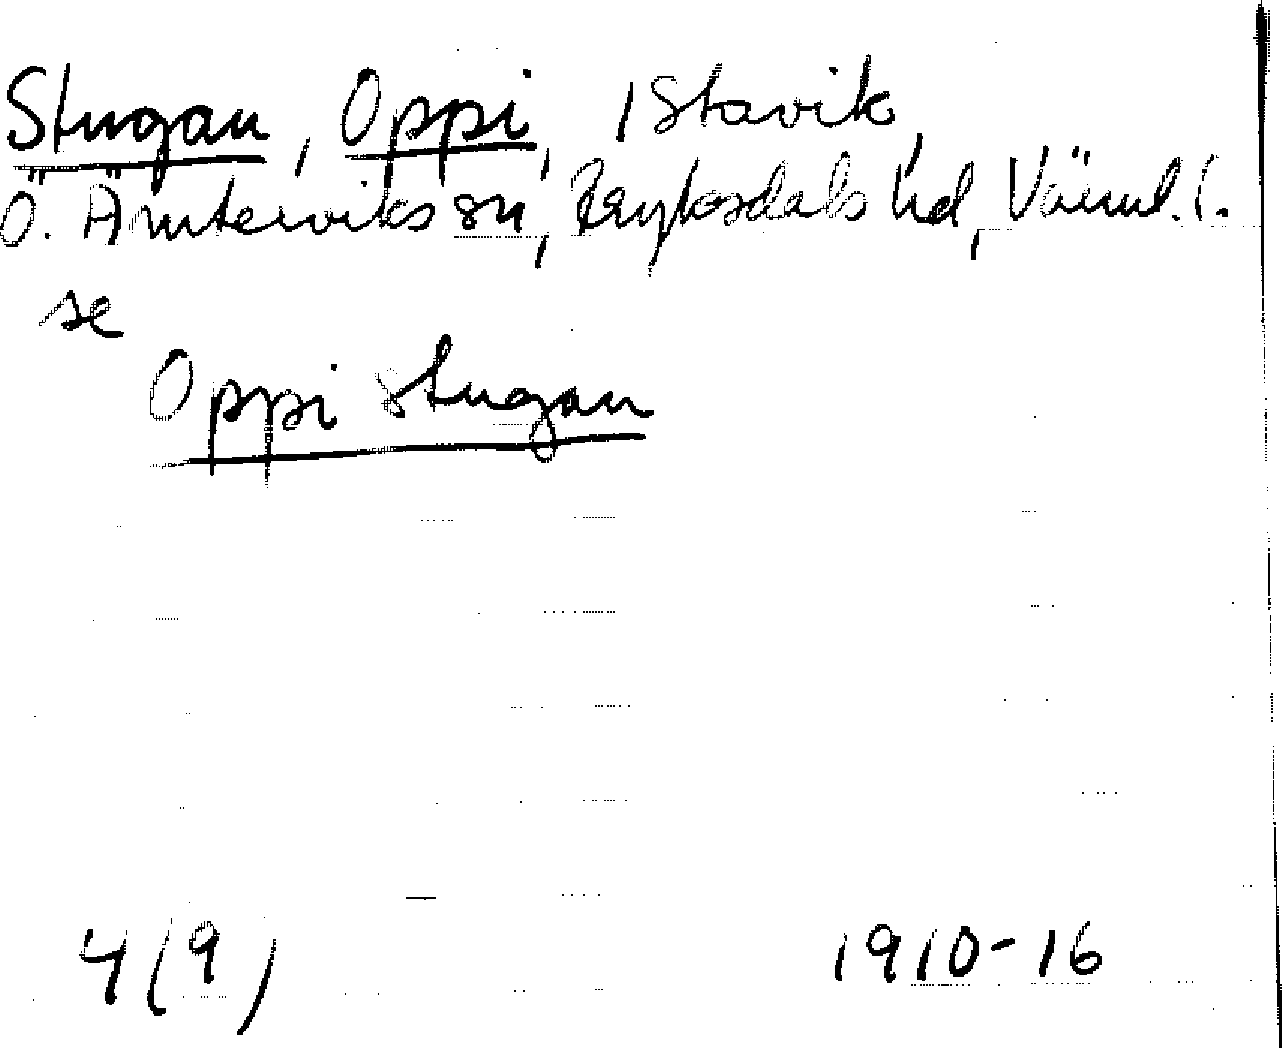 Stugan, Oppi, 1 Stavik,
Ö. Ämterviks sn, Fryksdals hd, Värml. l.
se
Oppi stugan
4 (9) 1910-16